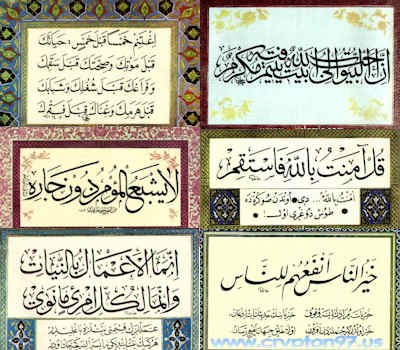 اغتنم خمسا قبل خمس: حياتك
قبل موتك وصحتك قبل سقمك
وفراغك قبل شغلك وشبابك
قبل هرمك وغناك قبل فقرك
ان احب البيوت الى الله بيت فيه يتيم مكرم
لا يشبع المؤمن دون جاره
قل آمنت بالله فاستقم
امنت بالله... دى، اوندن صوكره ده
دوغرى اول..!
انما الأعمال بالنيات
وانما لكل امرئ ما نوى
خير الناس انفعهم للناس
www.crypton97.us